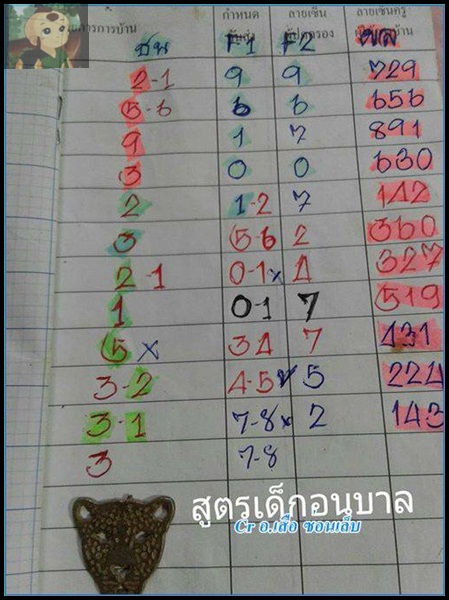 รายการการบ้าน กำหนด ลายเซ็น ลายเซ็นครู
ชน F1 F2 ผล
2-1 9 9 729
5-6 6 6 656
9 1 7 891
3 0 0 630
2 1-2 7 142
3 5-6 2 360
2-1 0-1x 4 327
1 0-1 7 519
5x 34 7 431
3-2 4-5 5 224
3-1 7-8x 2 143
3 7-8
สูตรเด็กอนุบาล
Cr อ.เสือ ซ่อนเล็บ